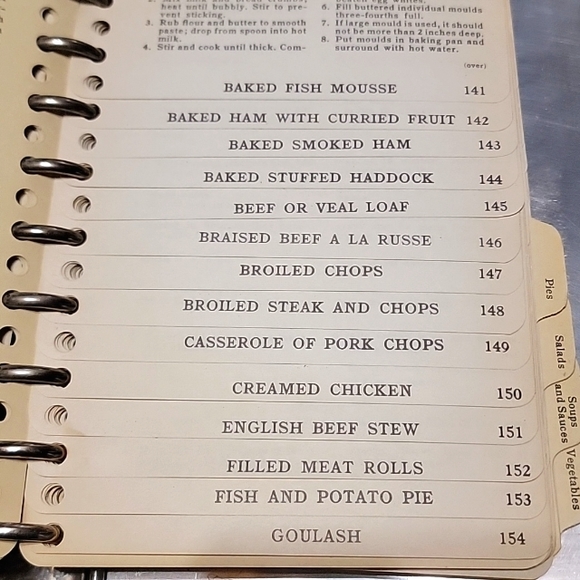 heat until bubbly. Stir to pre-
vent sticking.
3. Rub flour and butter to smooth
paste; drop from spoon into hot
milk.
4. Stir and cook until thick. Com-
6. Fill buttered individual moulds
three-fourths full.
7. If large mould is used, it should
not be more than 2 inches deep.
8. Put moulds in baking pan and
surround with hot water.
(over)
BAKED FISH MOUSSE 141
BAKED HAM WITH CURRIED FRUIT 142
BAKED SMOKED HAM 143
BAKED STUFFED HADDOCK 144
BEEF OR VEAL LOAF 145
BRAISED BEEF A LA RUSSE 146
BROILED CHOPS 147
BROILED STEAK AND CHOPS 148
CASSEROLE OF PORK CHOPS 149
CREAMED CHICKEN 150
ENGLISH BEEF STEW 151
FILLED MEAT ROLLS 152
FISH AND POTATO PIE 153
GOULASH 154
Pies
Salads
Soups
and Sauces
Vegetables